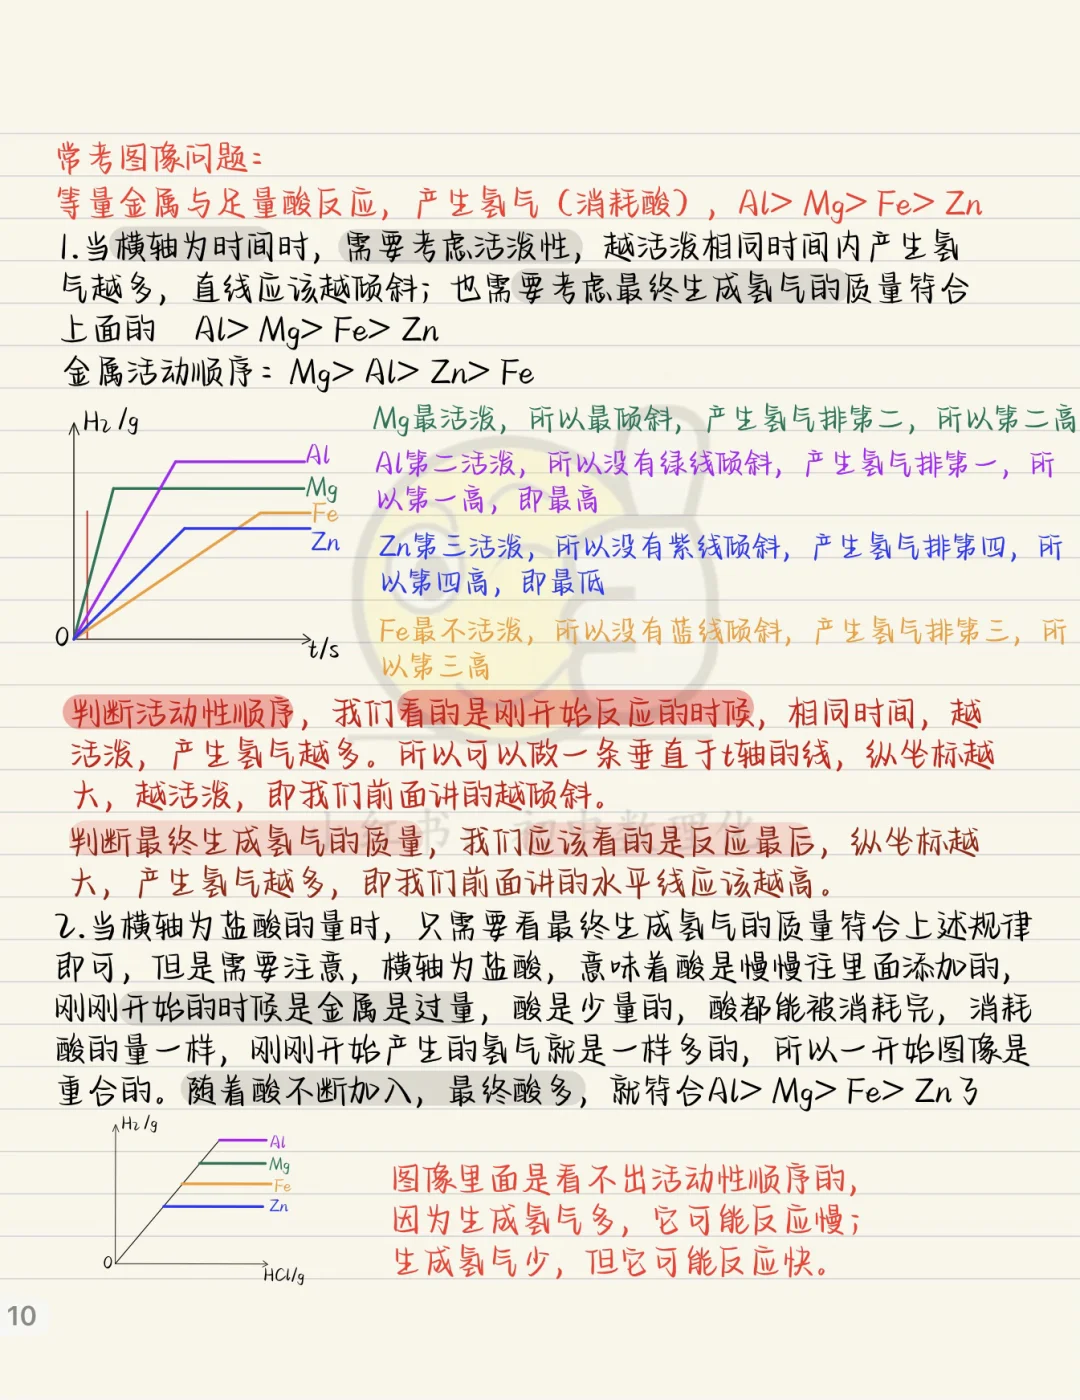 常考图像问题：
等量金属与足量酸反应，产生氢气（消耗酸），Al> Mg> Fe> Zn
1.当横轴为时间时，需要考虑活泼性，越活泼相同时间内产生氢
气越多，直线应该越倾斜；也需要考虑最终生成氢气的质量符合
上面的 Al> Mg> Fe> Zn
金属活动顺序：Mg> Al> Zn> Fe
H₂/g
Al
Mg
Fe
Zn
0
t/s
Mg最活泼，所以最倾斜，产生氢气排第二，所以第二高
Al第二活泼，所以没有绿线倾斜，产生氢气排第一，所
以第一高，即最高
Zn第三活泼，所以没有紫线倾斜，产生氢气排第四，所
以第四高，即最低
Fe最不活泼，所以没有蓝线倾斜，产生氢气排第三，所
以第三高
判断活动性顺序，我们看的是刚开始反应的时候，相同时间，越
活泼，产生氢气越多。所以可以做一条垂直于t轴的线，纵坐标越
大，越活泼，即我们前面讲的越倾斜。
小红书 初中数理化
判断最终生成氢气的质量，我们应该看的是反应最后，纵坐标越
大，产生氢气越多，即我们前面讲的水平线应该越高。
2.当横轴为盐酸的量时，只需要看最终生成氢气的质量符合上述规律
即可，但是需要注意，横轴为盐酸，意味着酸是慢慢往里面添加的，
刚刚开始的时候是金属是过量，酸是少量的，酸都能被消耗完，消耗
酸的量一样，刚刚开始产生的氢气就是一样多的，所以一开始图像是
重合的。随着酸不断加入，最终酸多，就符合Al> Mg> Fe> Zn了
H₂/g
Al
Mg
Fe
Zn
0
HCl/g
图像里面是看不出活动性顺序的，
因为生成氢气多，它可能反应慢；
生成氢气少，但它可能反应快。
10